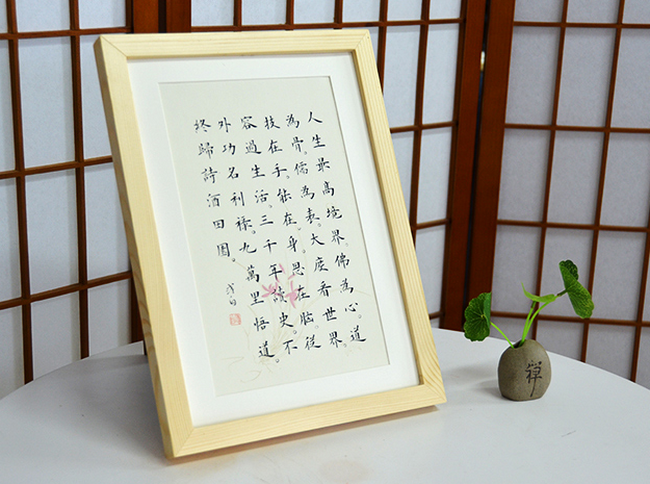 人生最高境界。佛為心。道
為骨。儒為表。大度看世界。
技在手。能在身。思在腦。從
容過生活。三千年讀史。不
外功名利祿。九萬里悟道。
終歸詩酒田園。
禪